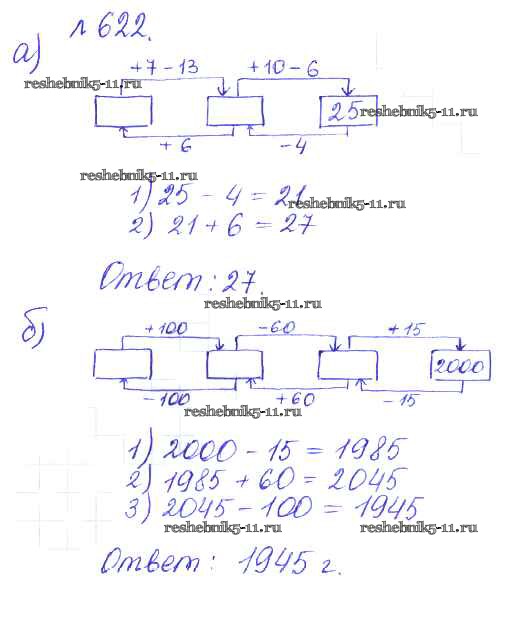 № 622.
а)
+7 – 13 +10 – 6
reshebnik5-11.ru
25 reshebnik5-11.ru
+ 6 – 4
reshebnik5-11.ru
1) 25 – 4 = 21
reshebnik5-11.ru
2) 21 + 6 = 27
Ответ: 27.
reshebnik5-11.ru
б)
+100 –60 +15
2000
–100 +60 –15
reshebnik5-11.ru
1) 2000 – 15 = 1985
2) 1985 + 60 = 2045
3) 2045 – 100 = 1945
reshebnik5-11.ru reshebnik5-11.ru
Ответ: 1945 г.